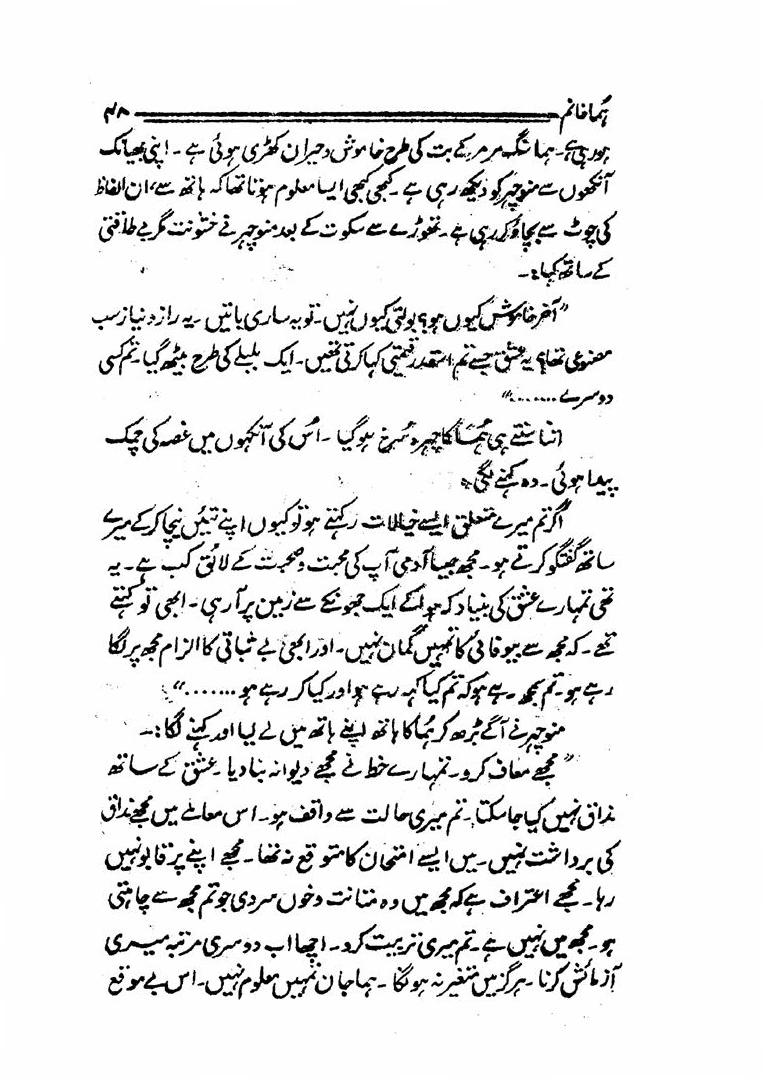 ہما خانم ۴۸
ہو رہی ہے۔ ہما سنگ مرمر کے بت کی طرح خاموش و حیران کھڑی ہوئی ہے۔ اپنی بھیانک
آنکھوں سے منوچہر کو دیکھ رہی ہے۔ کبھی کبھی ایسا معلوم ہوتا تھا کہ ہاتھ سے، ان الفاظ
کی چوٹ سے بچاؤ کر رہی ہے۔ تھوڑے سے سکوت کے بعد منوچہر نے خشونت مگر بے طاقتی
کے ساتھ کہا:۔
"آخر خاموش کیوں ہو؟ بولتی کیوں نہیں۔ تو یہ ساری باتیں۔ یہ راز و نیاز سب
مصنوعی تھا؟ یہ عشق جسے تم اسقدر قیمتی کہا کرتی تھیں۔ ایک بلبلے کی طرح بیٹھ گیا۔ تم کسی
دوسرے ........"
اتنا سنتے ہی ہُما کا چہرہ سُرخ ہو گیا۔ اُس کی آنکہوں میں غصہ کی چمک
پیدا ہوئی۔ وہ کہنے لگی:۔
اگر تم میرے متعلق ایسے خیالات رکہتے ہو تو کیوں اپنے تئیں نیچا کر کے میرے
ساتھ گفتگو کرتے ہو۔ مجھ جیسا آدمی آپ کی محبت و صحبت کے لائق کب ہے۔ یہ
تھی تمہارے عشق کی بنیاد کہ ہوا کے ایک جھونکے سے زمین پر آ رہی۔ ابھی تو کہتے
تھے۔ کہ مجھ سے بیوفائی کا تمہیں گمان نہیں۔ اور ابھی بے ثباتی کا الزام مجھ پر لگا
رہے ہو۔ تم سمجھ رہے ہو کہ تم کیا کہہ رہے ہو اور کیا کر رہے ہو ......."
منوچہر نے آگے بڑھ کر ہُما کا ہاتھ اپنے ہاتھ میں لے لیا اور کہنے لگا:۔
"مجھے معاف کرو۔ تمہارے خط نے مجھے دیوانہ بنا دیا۔ عشق کے ساتھ
مذاق نہیں کیا جا سکتا۔ تم میری حالت سے واقف ہو۔ اس معاملے میں مجھے مذاق
کی برداشت نہیں۔ میں ایسے امتحان کا متوقع نہ تھا۔ مجھے اپنے پر قابو نہیں
رہا۔ مجھے اعتراف ہے کہ مجھ میں وہ متانت و خوں سردی جو تم مجھ سے چاہتی
ہو۔ مجھ میں نہیں ہے۔ تم میری تربیت کرو۔ اچھا اب دوسری مرتبہ میری
آزمائش کرنا۔ ہرگز میں متغیر نہ ہو نگا۔ ہما جان تمہیں معلوم نہیں۔ اس بے موقع